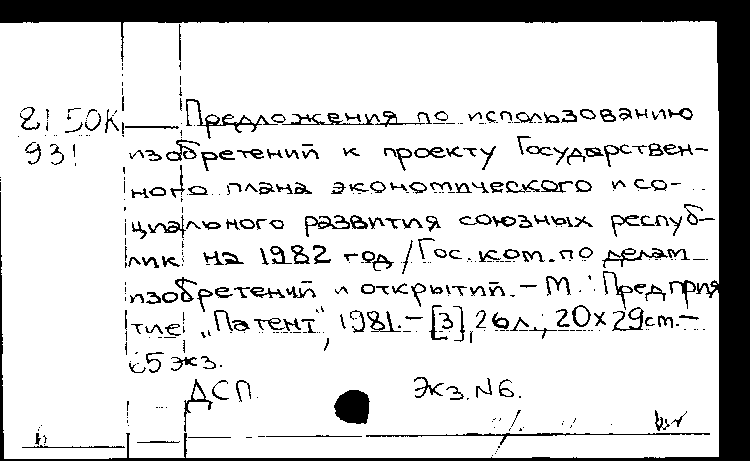 2150К Предложения по использованию
931 изобретений к проекту Государствен-
ного плана экономического и со-
циального развития союзных респуб-
лик на 1982 год / Гос. ком. по делам
изобретений и открытий. - М.: Предприя
тие „Патент", 1981. - [3], 26 л.; 20х29 см. -
65 экз.
ДСП. Экз. №6.